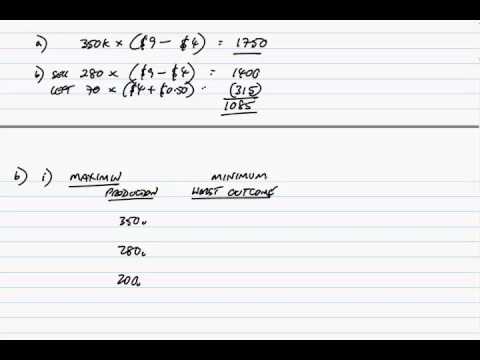 a) 350k x ($9 - $4) = 1750
b) SELL 280 x ($9 - $4) = 1400
LEFT 70 x ($4 + $0.50) = (315)
1085
b) i) MAXIMIN MINIMUM
PRODUCTION WORST OUTCOME
350k
280k
200k